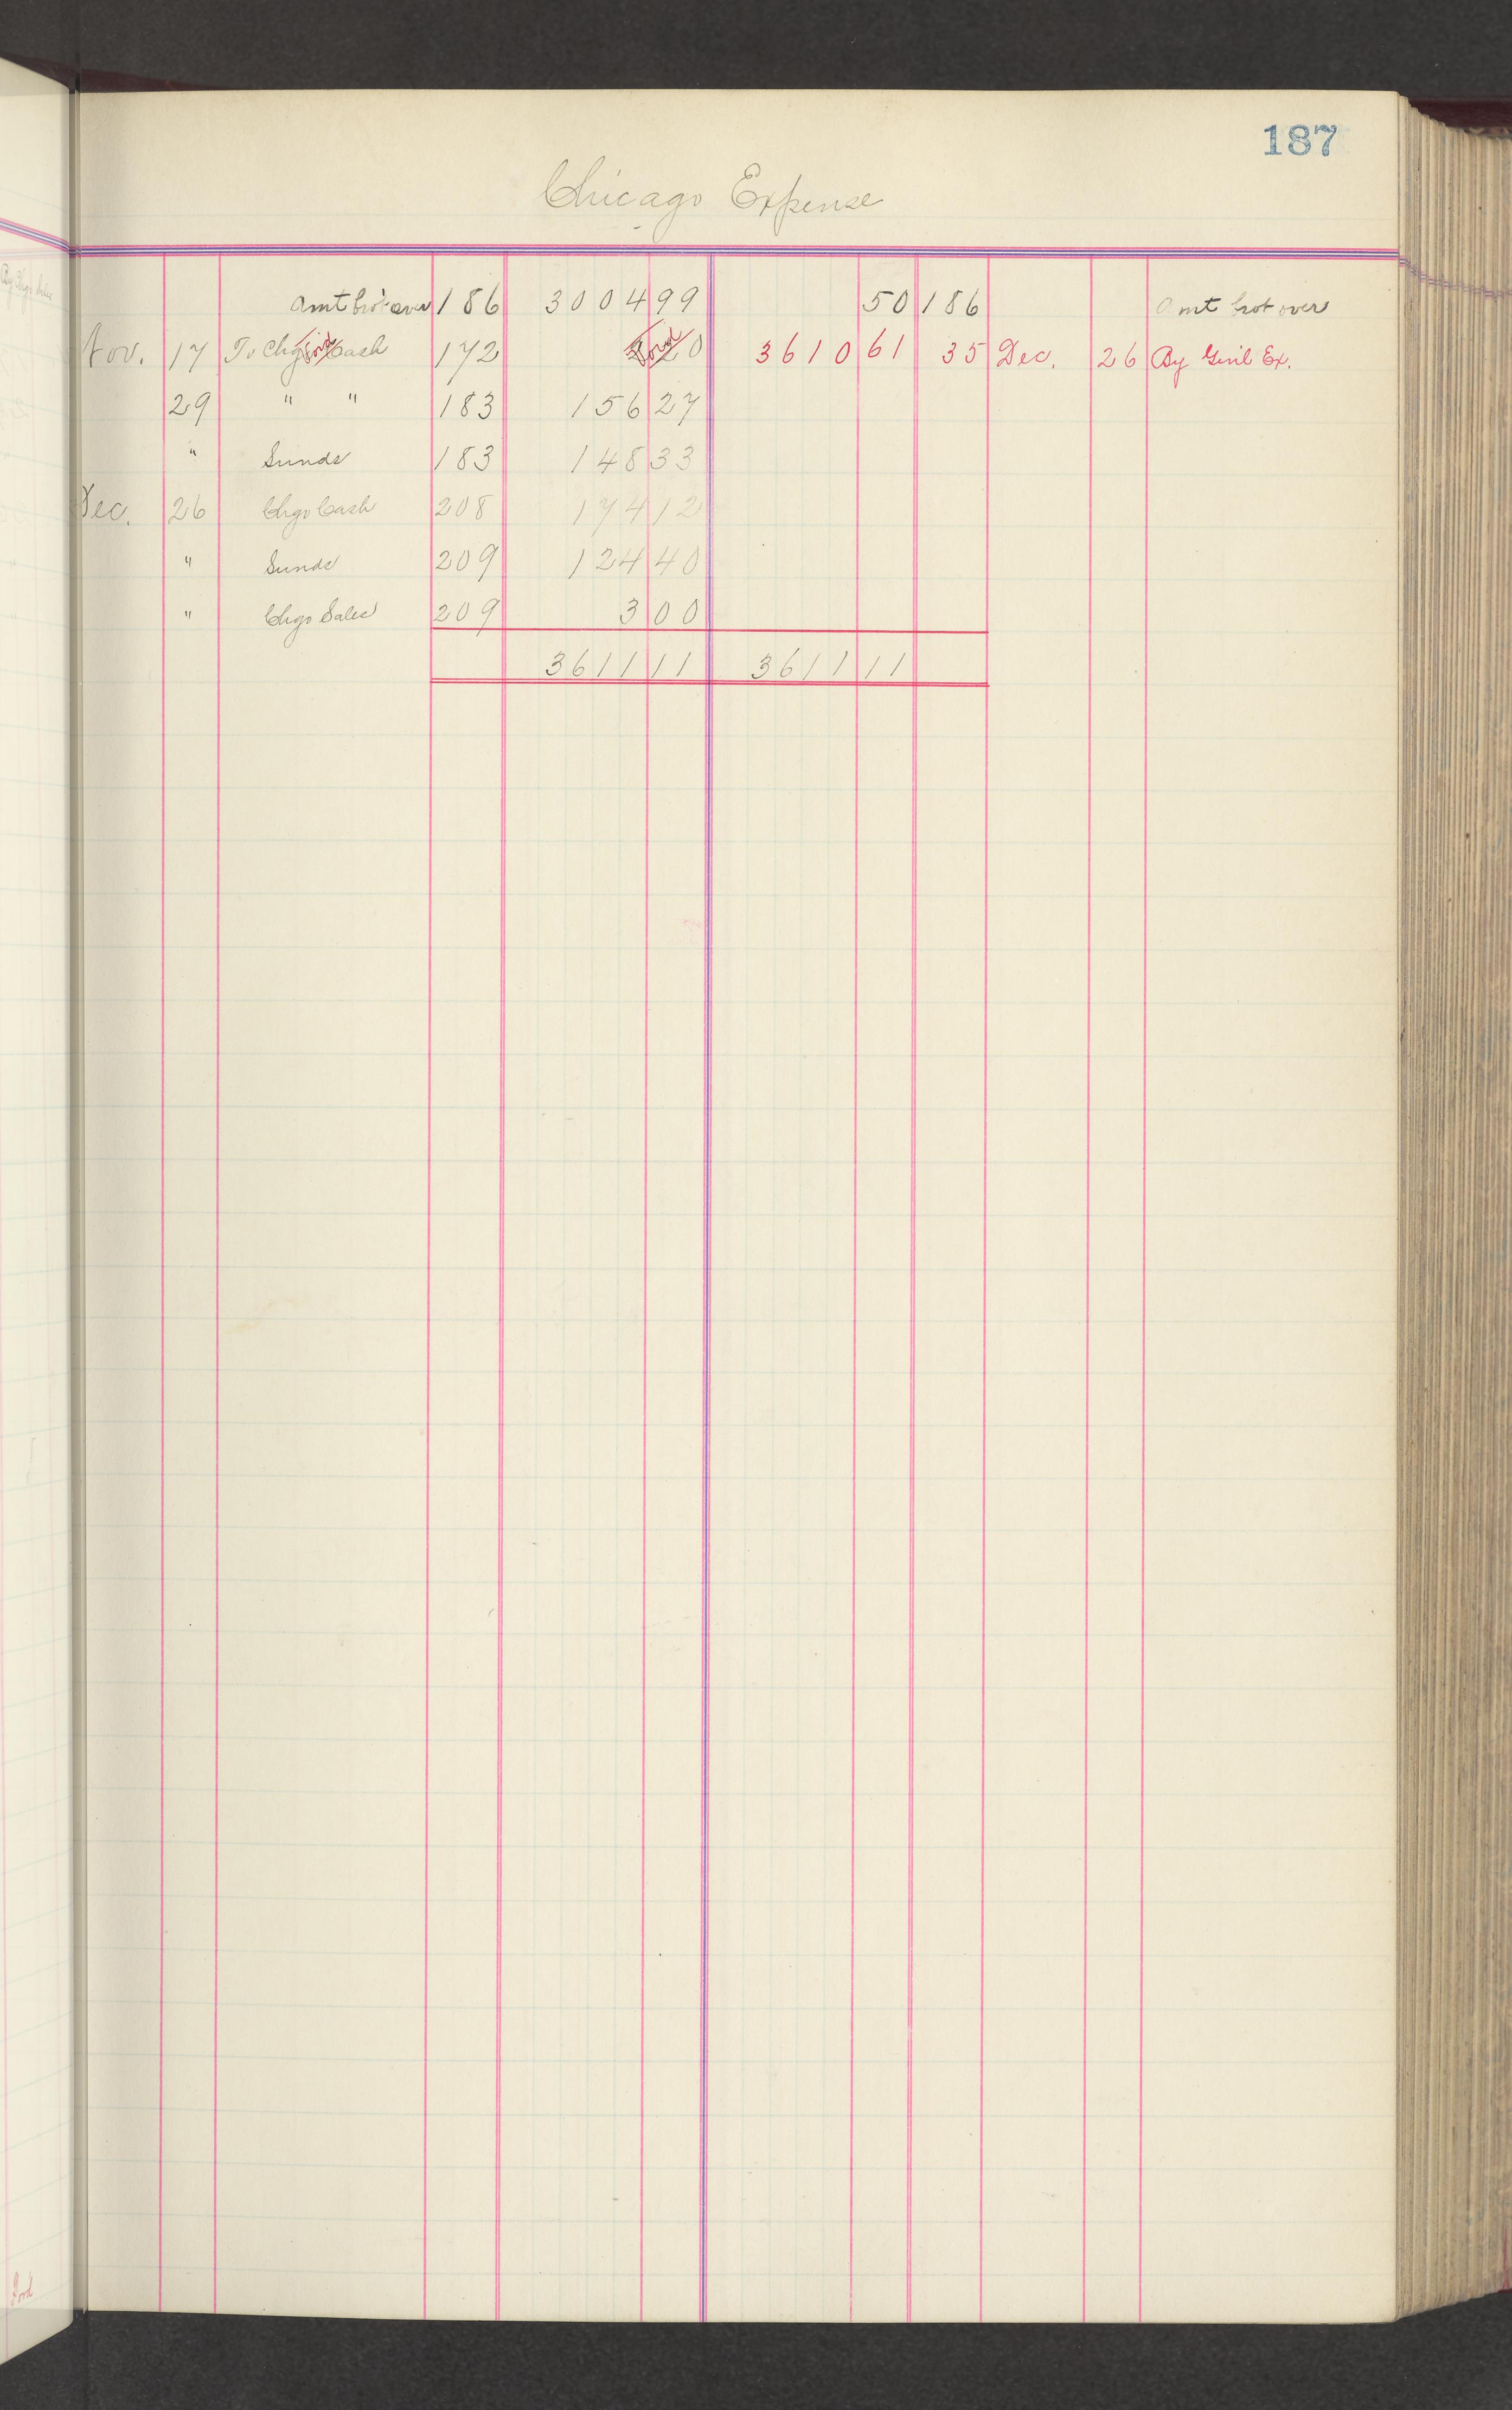 187
Chicago Expense
Amt brot over 186 3004 99 50 186 Amt brot over
Nov. 17 To Chgo Cash 172 20 3610 61 35 Dec. 26 By Genl Ex.
29 " " 183 156 27
" Sunds 183 148 33
Dec. 26 Chgo Cash 208 174 12
" Sunds 209 124 40
" Chgo Sales 209 3 00
3611 11 3611 11